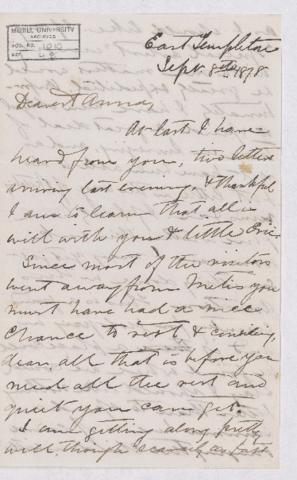 McGILL UNIVERSITY
ARCHIVES
ACC. NO. 1010
REF.
East Templeton
Sept. 8th 1878
Dearest Anna,
As last I have
heard from you, two letters
arriving last evening, & thankful
I am to learn that all is
well with you & little Eric.
Since most of the visitors
went away from Metis you
must have had a nice
chance to rest & considering,
dear, all that is before you
need all the rest and
quiet you can get.
I am getting along pretty
well though scarcely as fast